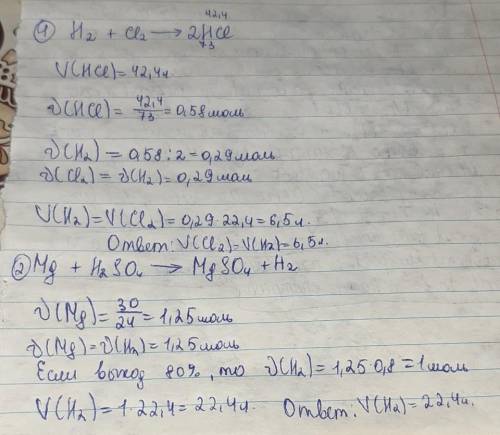 ① H₂ + Cl₂ → 2HCl
42,4
73
V(HCl)=42,4л
ν(HCl)= 42,4/73 = 0,58 моль
ν(H₂) = 0,58 : 2 = 0,29 моль
ν(Cl₂) = ν(H₂) = 0,29 моль
V(H₂)=V(Cl₂)= 0,29 · 22,4 = 6,5 л.
Ответ: V(Cl₂)=V(H₂)=6,5 л.
② Mg + H₂SO₄ → MgSO₄ + H₂
ν(Mg)= 30/24 = 1,25 моль
ν(Mg)=ν(H₂)= 1,25 моль
Если выход 80%, то ν(H₂)= 1,25·0,8 = 1 моль
V(H₂)= 1·22,4 = 22,4 л. Ответ: V(H₂)= 22,4 л.